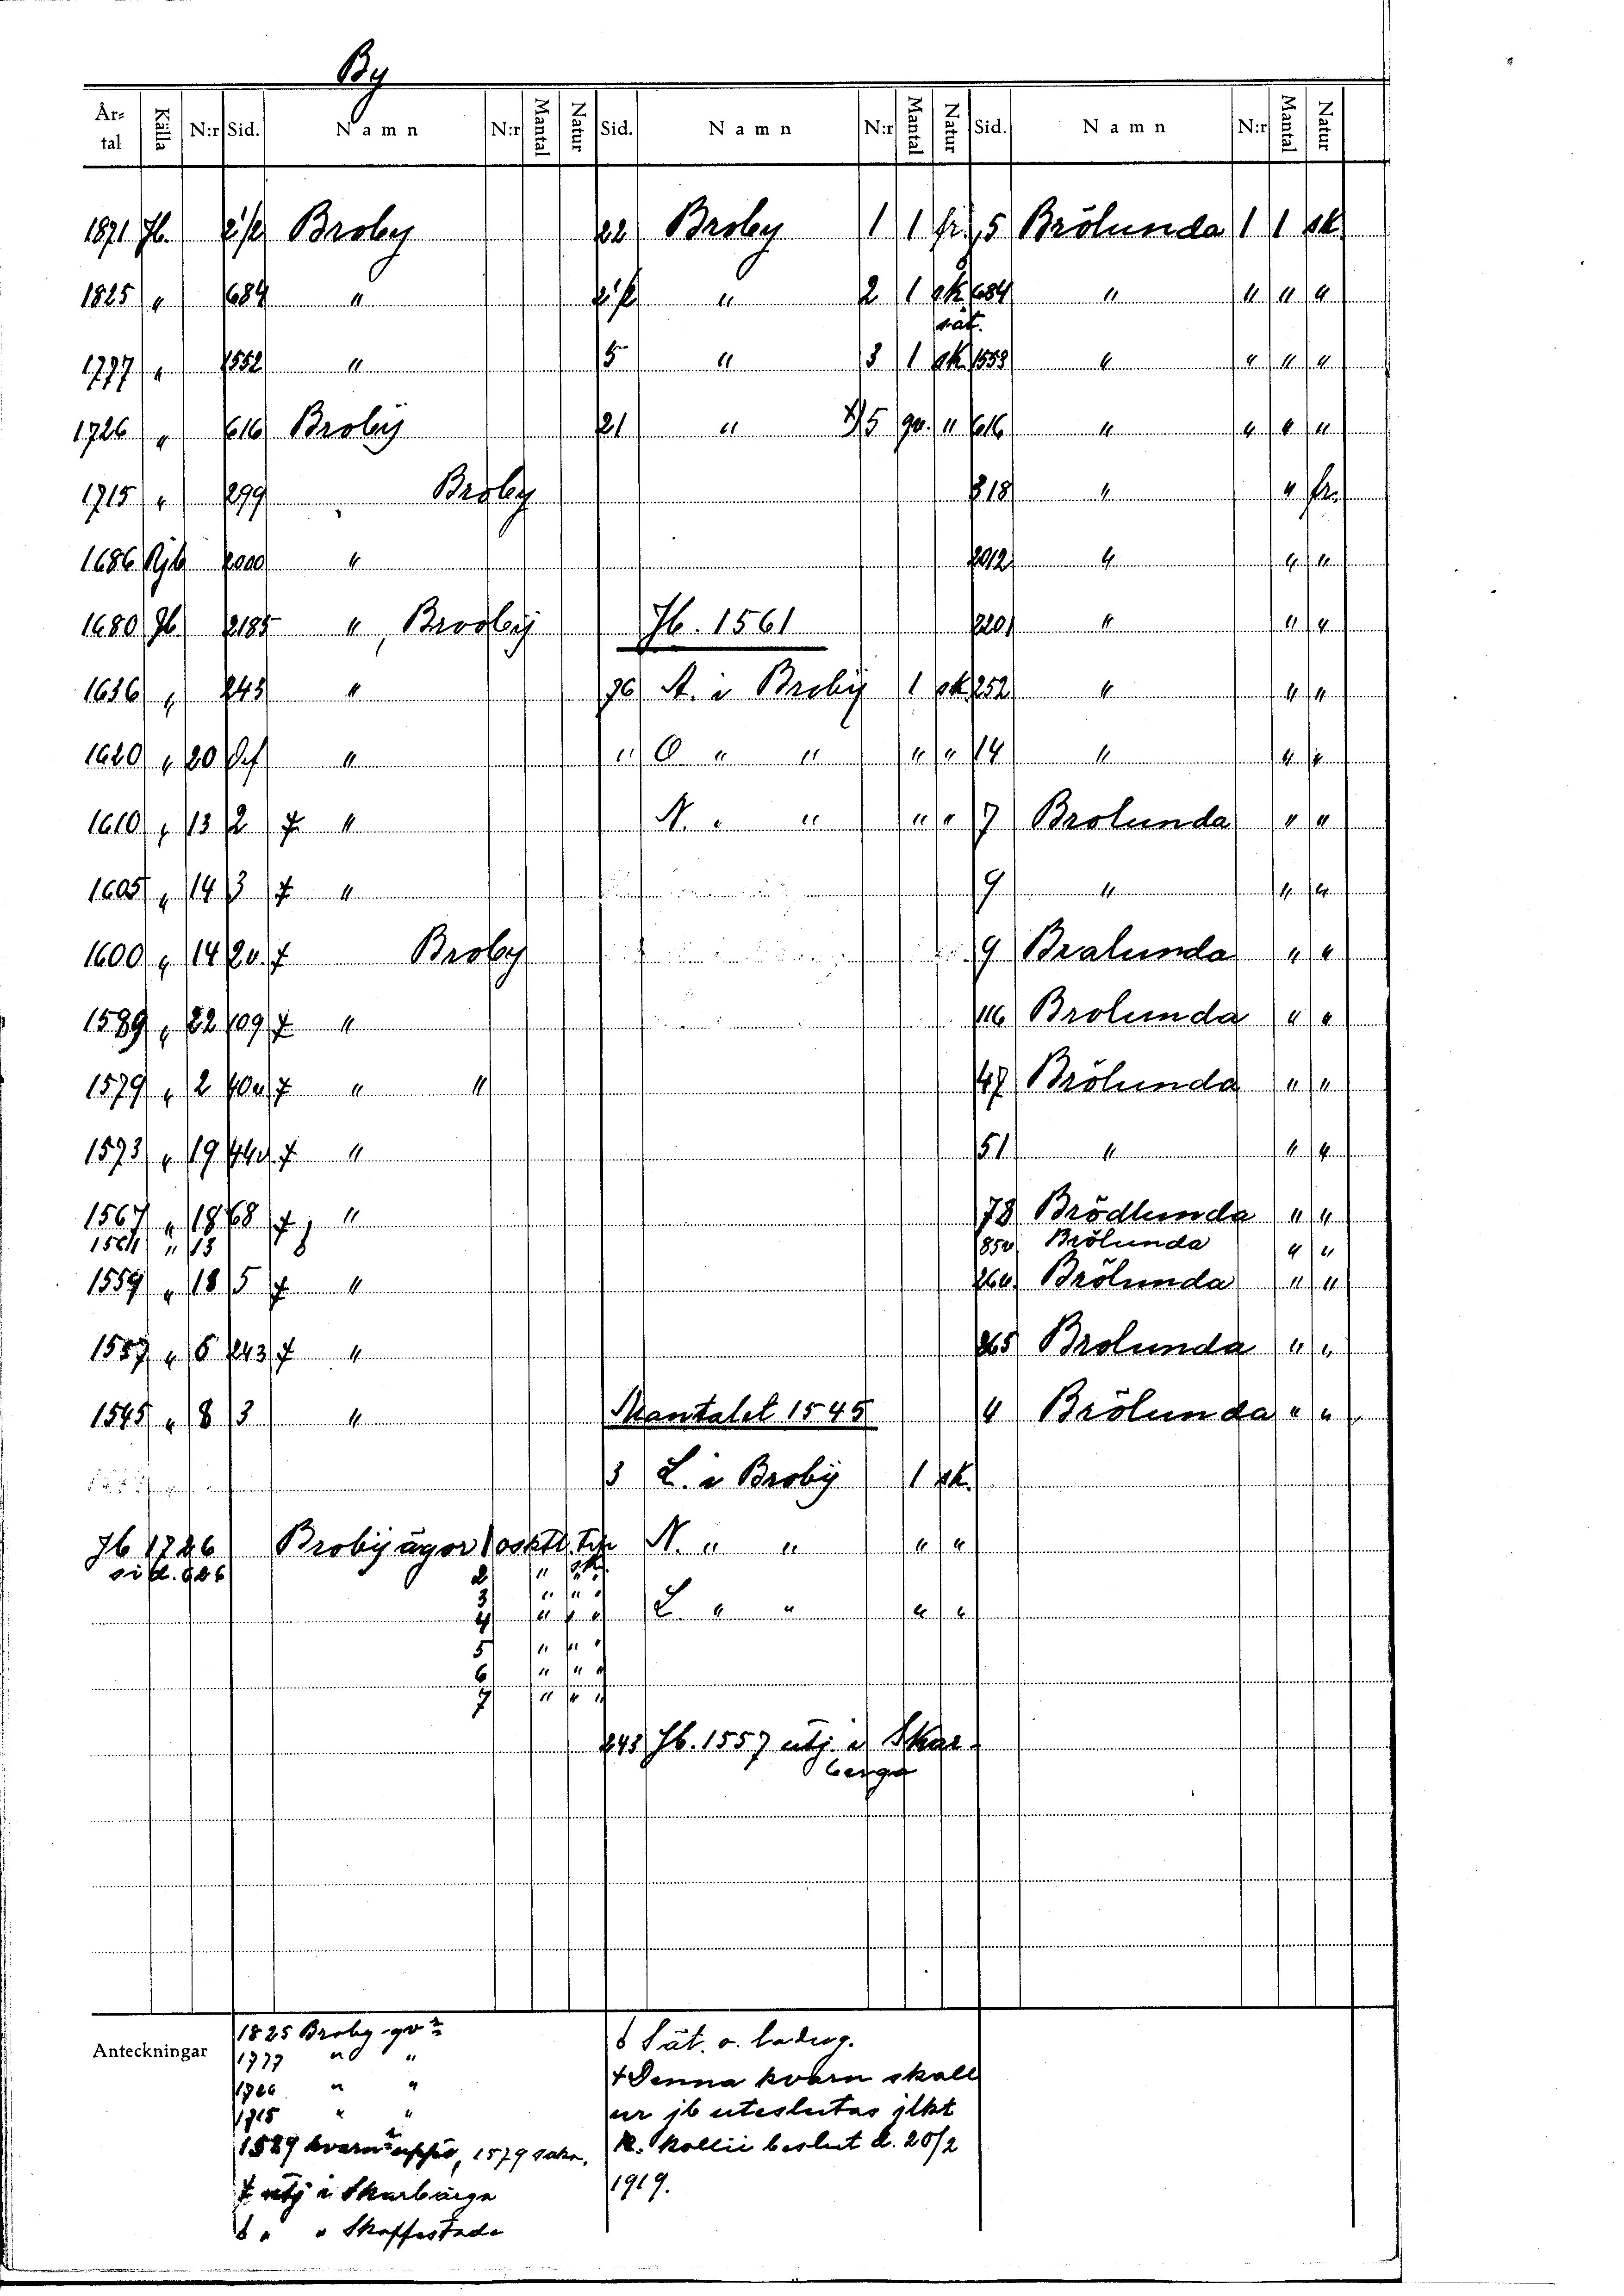 By
Årtal Källa N:r Sid. Namn N:r Mantal Natur Sid. Namn N:r Mantal Natur Sid. Namn N:r Mantal Natur
1871 Jb. 21/2 Broby 22 Broby 1 1 fr. 5 Brölunda 1 1 sk
1825 " 684 " 21/2 " 2 1 sk 684 " " " "
sät.
1777 " 1552 " 5 " 3 1 sk. 1553 " " " "
1726 " 616 Brobÿ 21 " x) 5 qv. " 616 " " " "
1715 " 299 Broby 318 " " fr.
1686 Rjb 2000 " 2012 " " "
1680 Jb. 2185 " , Broobÿ Jb. 1561 2201 " " "
1636 " 243 " 76 A. i Brobÿ 1 sk 252 " " "
1620 " 20 Def " " O " " " " 14 " " "
1610 " 13 2 ⨍ " N. " " " " 7 Brolunda " "
1605 " 14 3 ⨍ " 9 " " "
1600 " 14 2v. ⨍ Broby 9 Bralunda " "
1589 " 22 109 ⨍ " 116 Brolunda " "
1579 " 2 40v ⨍ " " 47 Brölunda " "
1573 " 19 44v. ⨍ " 51 " " "
1567 " 18 68 ⨍ " 78 Brödlunda " "
1564 " 13 85v Brölunda " "
1559 " 18 5 ⨍ " 264. Brölunda " "
1557 " 6 243 ⨍ " 265 Brolunda " "
1545 " 8 3 " Mantalet 1545 4 Brölunda " "
3 L. i Brobÿ 1 sk.
Jb 1726 Brobÿ ägor 1 osktl. N. " " " "
sid. 626 2 " sk.
3 " " "
4 " " " L. " " " "
5 " " "
6 " " "
7 " " "
243 Jb. 1557 utj. i Skar-
berga
Anteckningar
1825 Broby qvn
1777 " "
1726 " "
1715 " "
1589 kvarn uppfö, 1579 sakn.
⨍ utj i Skarbärga
δ " " Skaffestada
δ Sät. o. ladug.
+ Denna kvarn skall
ur jb uteslutas jlkt
K. kollii beslut d. 20/2
1919.